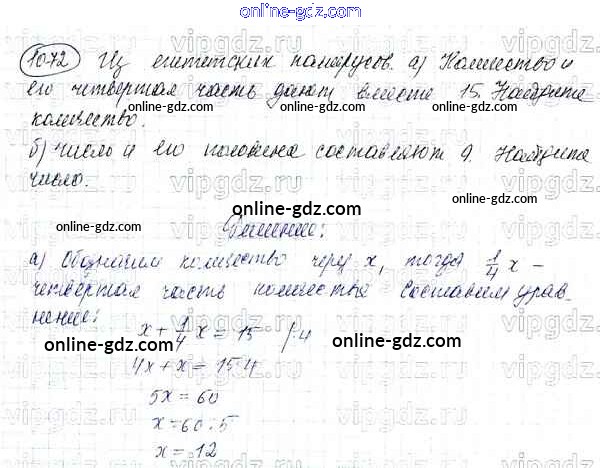 online-gdz.com
1072 Из египетских папирусов. а) Количество и
его четвертая часть дают вместе 15. Найдите
online-gdz.com online-gdz.com
количество.
б) число и его половина составляют 9. Найдите
число.
online-gdz.com
Решение:
а) Обозначим количество через x, тогда 1/4 x –
четвёртая часть количества Составим урав-
нение:
online-gdz.com
x + 1/4 x = 15 /·4
online-gdz.com online-gdz.com
4x + x = 15·4
5x = 60
x = 60:5
online-gdz.com
x = 12
vipgdz.ru